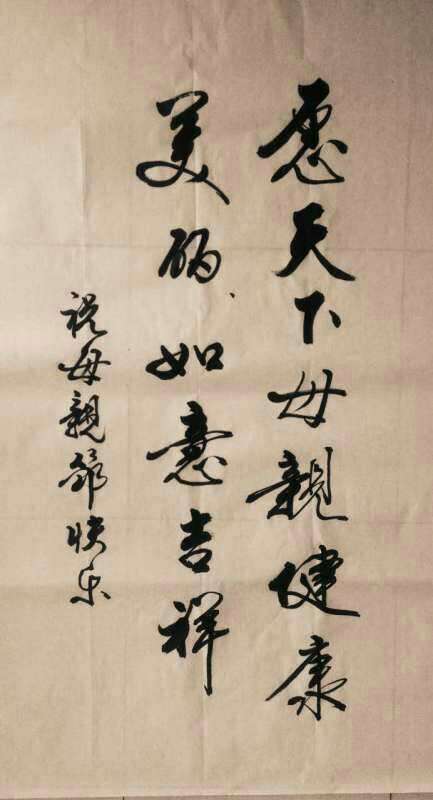 愿天下母親健康
美丽、如意吉祥
祝母親節快乐